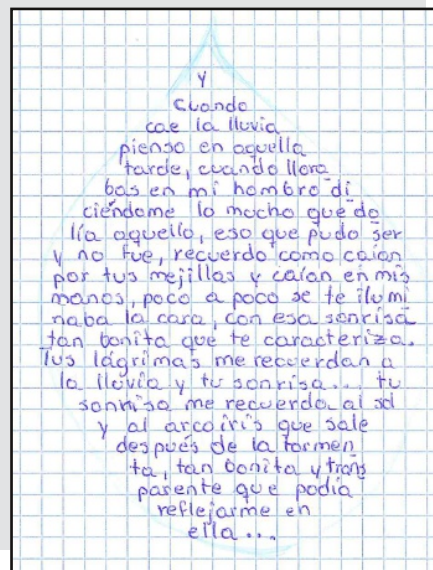 Y
Cuando
cae la lluvia
pienso en aquella
tarde, cuando llora
bas en mi hombro di
ciéndome lo mucho que do
lía aquello, eso que pudo ser
y no fue, recuerdo como caían
por tus mejillas y caían en mis
manos, poco a poco se te ilumi
naba la cara, con esa sonrisa
tan bonita que te caracteriza.
Tus lágrimas me recuerdan a
la lluvia y tu sonrisa... tu
sonrisa me recuerda al sol
y al arcoíris que sale
después de la tormen
ta, tan bonita y trans
parente que podía
reflejarme en
ella...